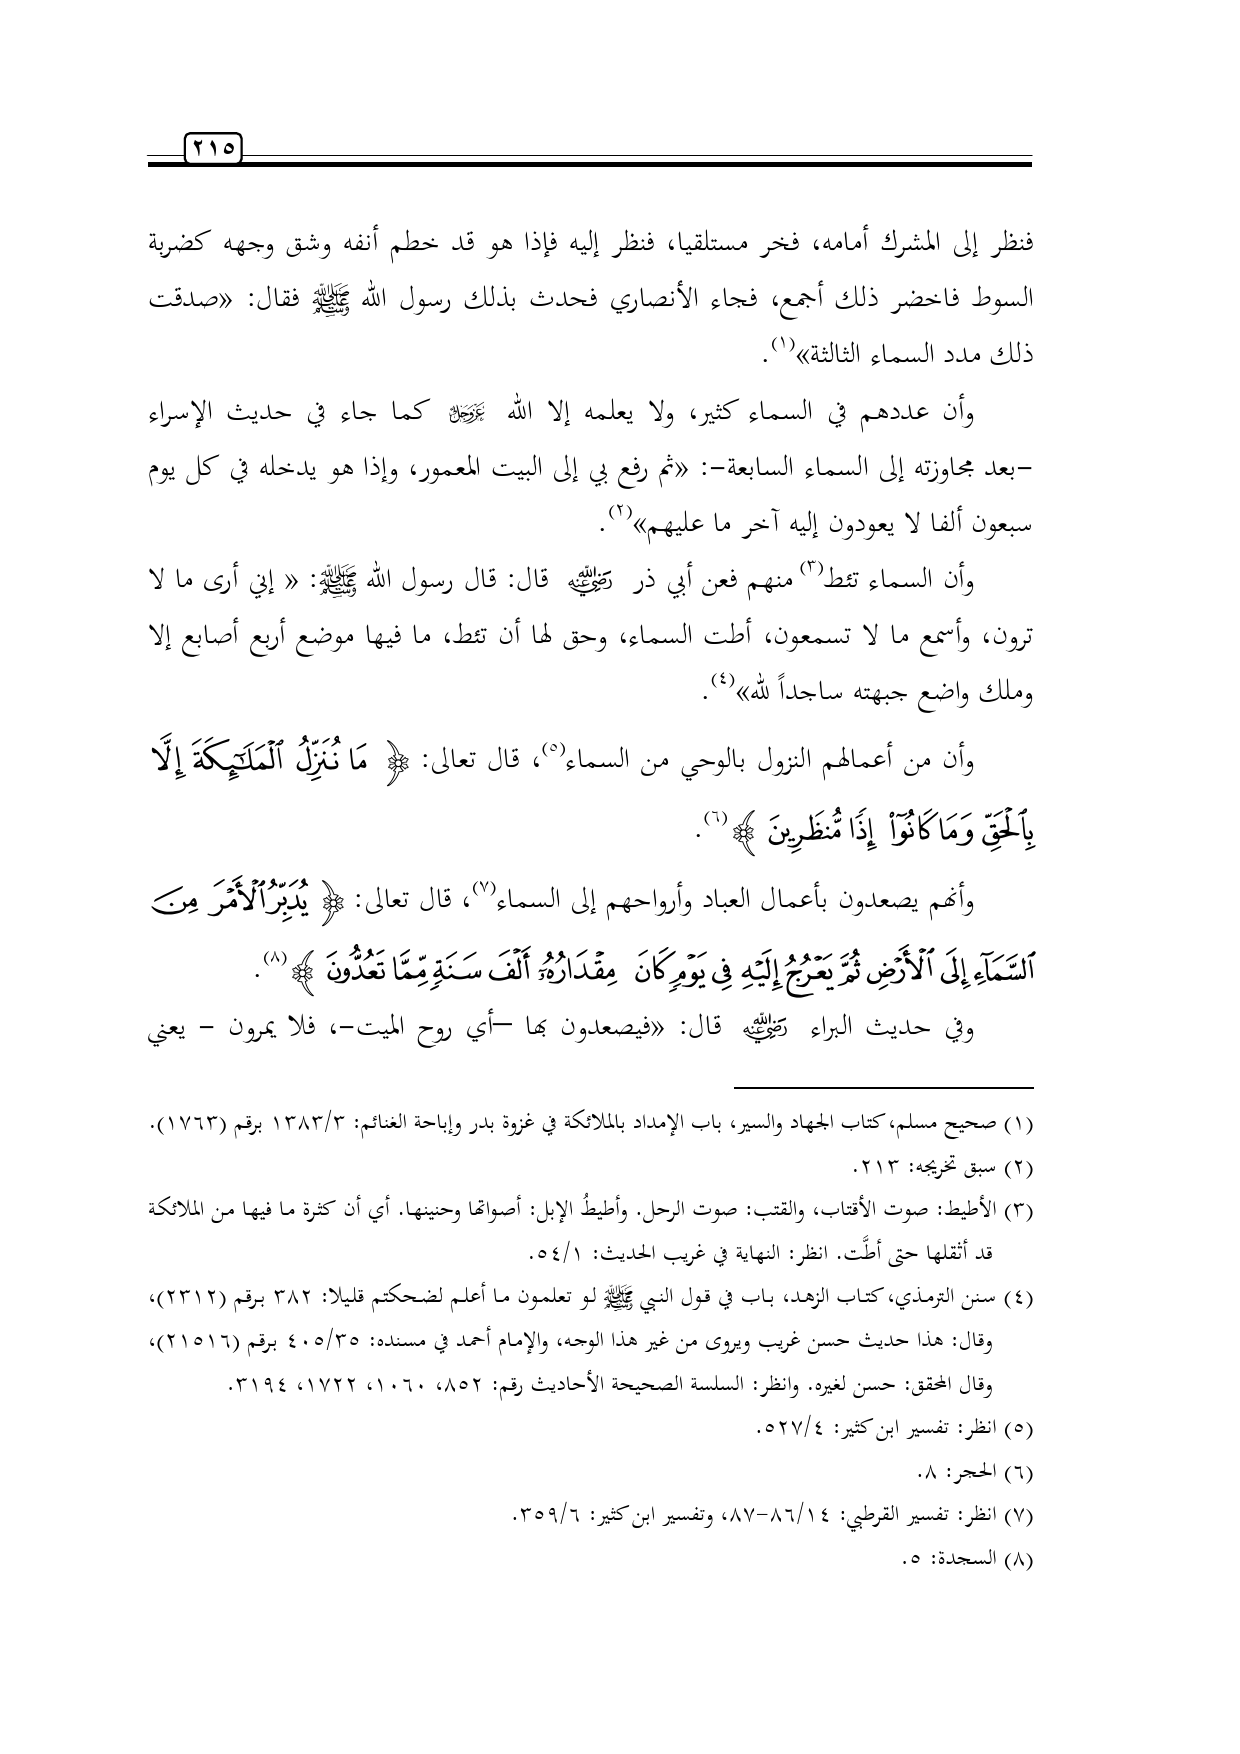 ٢١٥
فنظر إلى المشرك أمامه، فخر مستلقيا، فنظر إليه فإذا هو قد خطم أنفه وشق وجهه كضربة
السوط فاخضر ذلك أجمع، فجاء الأنصاري فحدث بذلك رسول الله ﷺ فقال: «صدقت
ذلك مدد السماء الثالثة»(١).
وأن عددهم في السماء كثير، ولا يعلمه إلا الله عَزَّوَجَلَّ كما جاء في حديث الإسراء
–بعد مجاوزته إلى السماء السابعة–: «ثم رفع بي إلى البيت المعمور، وإذا هو يدخله في كل يوم
سبعون ألفا لا يعودون إليه آخر ما عليهم»(٢).
وأن السماء تئط(٣) منهم فعن أبي ذر رَضِيَ اللَّهُ عَنْهُ قال: قال رسول الله ﷺ: « إني أرى ما لا
ترون، وأسمع ما لا تسمعون، أطت السماء، وحق لها أن تئط، ما فيها موضع أربع أصابع إلا
وملك واضع جبهته ساجداً لله»(٤).
وأن من أعمالهم النزول بالوحي من السماء(٥)، قال تعالى: ﴿ مَا نُنَزِّلُ ٱلْمَلَـٰٓئِكَةَ إِلَّا
بِٱلْحَقِّ وَمَا كَانُوٓا۟ إِذًا مُّنظَرِينَ ﴾(٦).
وأنهم يصعدون بأعمال العباد وأرواحهم إلى السماء(٧)، قال تعالى: ﴿ يُدَبِّرُ ٱلْأَمْرَ مِنَ
ٱلسَّمَآءِ إِلَى ٱلْأَرْضِ ثُمَّ يَعْرُجُ إِلَيْهِ فِى يَوْمٍ كَانَ مِقْدَارُهُۥٓ أَلْفَ سَنَةٍ مِّمَّا تَعُدُّونَ ﴾(٨).
وفي حديث البراء رَضِيَ اللَّهُ عَنْهُ قال: «فيصعدون بها –أي روح الميت–، فلا يمرون – يعني
(١) صحيح مسلم، كتاب الجهاد والسير، باب الإمداد بالملائكة في غزوة بدر وإباحة الغنائم: ١٣٨٣/٣ برقم (١٧٦٣).
(٢) سبق تخريجه: ٢١٣.
(٣) الأطيط: صوت الأقتاب، والقتب: صوت الرحل. وأطيطُ الإبل: أصواتها وحنينها. أي أن كثرة ما فيها من الملائكة
قد أثقلها حتى أطَّت. انظر: النهاية في غريب الحديث: ٥٤/١.
(٤) سنن الترمذي، كتاب الزهد، باب في قول النبي ﷺ لو تعلمون ما أعلم لضحكتم قليلا: ٣٨٢ برقم (٢٣١٢)،
وقال: هذا حديث حسن غريب ويروى من غير هذا الوجه، والإمام أحمد في مسنده: ٤٠٥/٣٥ برقم (٢١٥١٦)،
وقال المحقق: حسن لغيره. وانظر: السلسة الصحيحة الأحاديث رقم: ٨٥٢، ١٠٦٠، ١٧٢٢، ٣١٩٤.
(٥) انظر: تفسير ابن كثير: ٥٢٧/٤.
(٦) الحجر: ٨.
(٧) انظر: تفسير القرطبي: ٨٦/١٤–٨٧، وتفسير ابن كثير: ٣٥٩/٦.
(٨) السجدة: ٥.